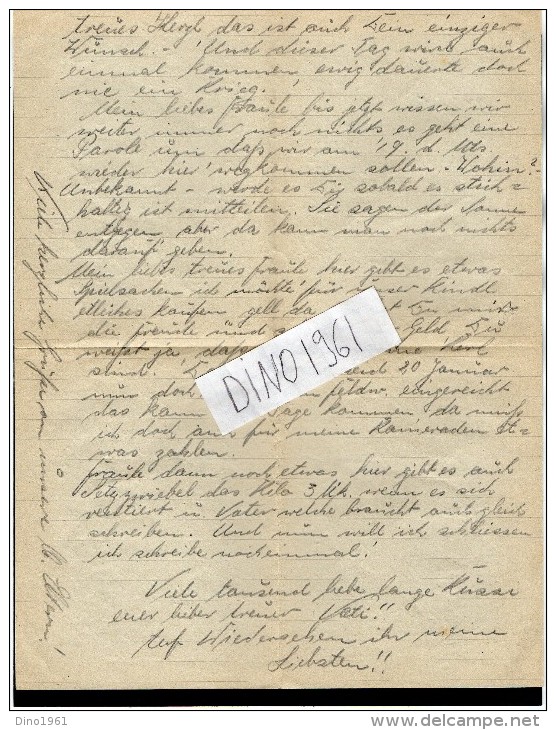 treues Herzl das ist auch Dein einziger
Wunsch. - Und dieser Tag wird auch
einmal kommen, ewig dauerte doch
nie ein Krieg.
Mein liebes Fraule bis jetzt wissen wir
weiter immer noch nichts es geht eine
Parole um daß wir am 19. d. Mts.
wieder hier wegkommen sollen - Wohin? -
Unbekannt - werde es Dir sobald es stich=
haltig ist mitteilen. Sie sagen der Sonne
entgegen, aber da kann man noch nichts
darauf geben.
Mein liebs treues Fraule hier gibt es etwas
Spielsachen ich möchte für unser Kindl
etliches kaufen gell da Du mir
die Freude und Geld Du
weißt ja, daß
sind. 20 Januar
nun doch Feldw. eingereicht
das kann Tage kommen, da muß
ich doch auch für meine Kameraden et=
was zahlen.
Fraule dann noch etwas hier gibt es auch
das Kilo 3 Mk. wenn es sich
rentiert u. Vater welche braucht auch gleich
schreiben. Und nun will ich schliessen
ich schreibe nocheinmal!
Viele tausend liebe lange Küsse
euer lieber treuer Vati!!
Auf Wiedersehen ihr meine
Liebsten!!
Viele herzliche Grüße an unsere lb. Eltern!
DINO1961
Dino1961
delcampe.net